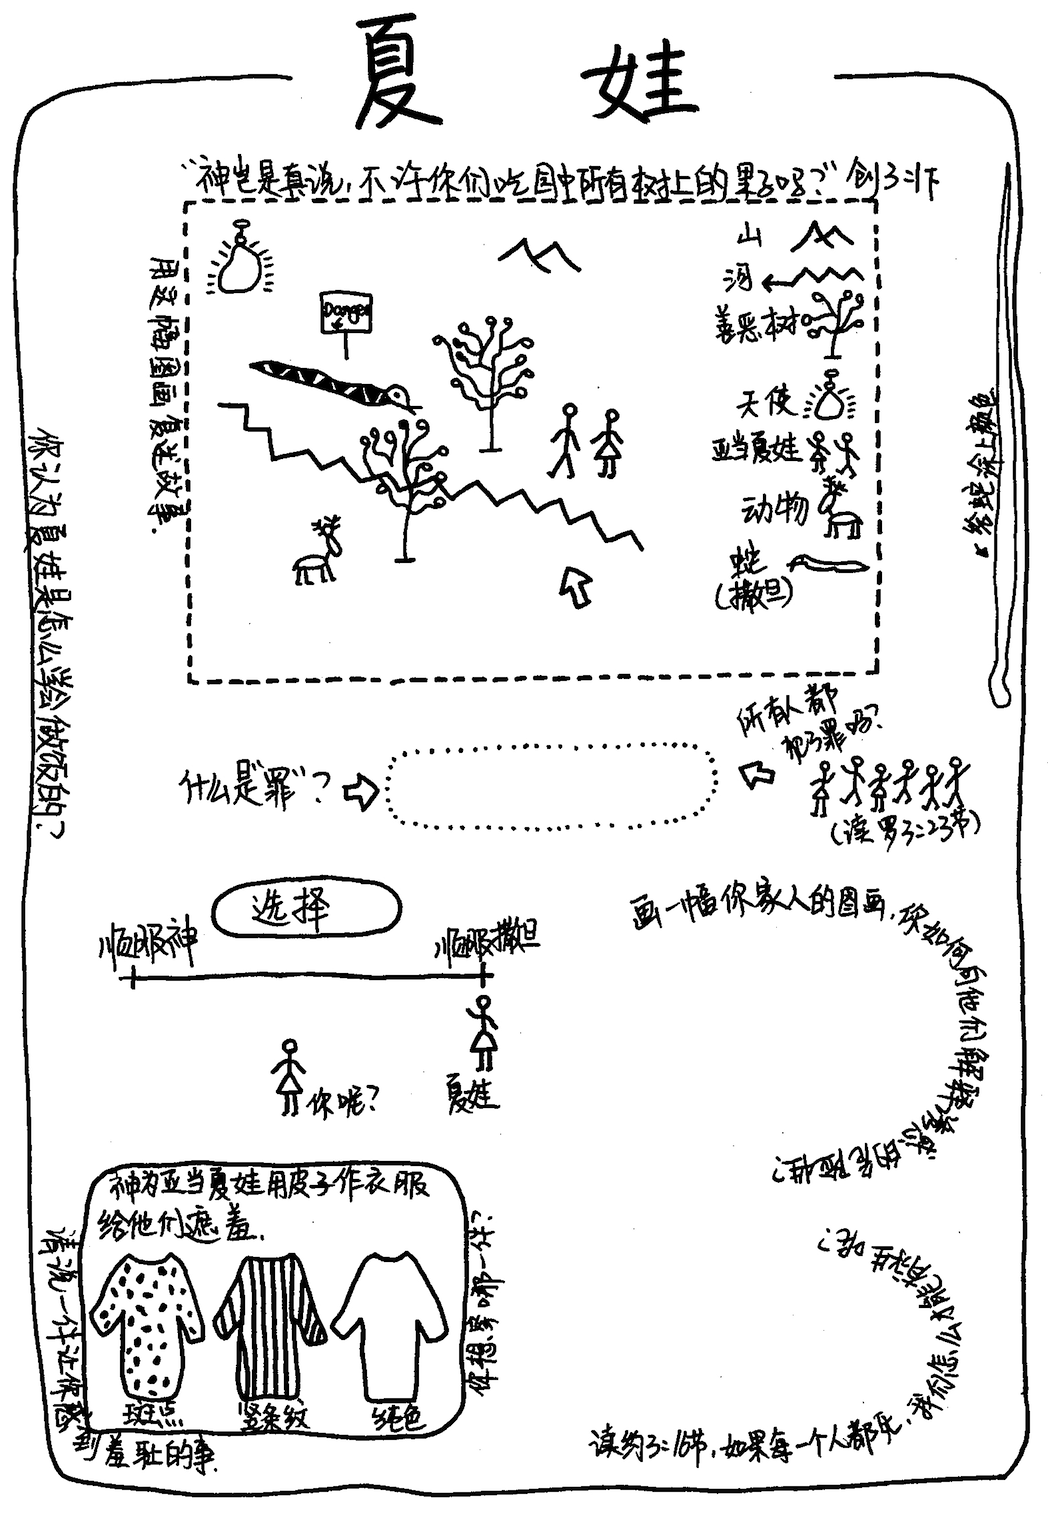 夏 娃
“神岂是真说，不许你们吃园中所有树上的果子吗？”创3:1下
用这幅图画复述故事.
Danger
山
河
善恶树
天使
亚当夏娃
动物
蛇
(撒旦)
给蛇涂上颜色
你认为夏娃是怎么学会做饭的？
什么是“罪”？
所有人都
犯了罪吗？
(读罗3:23节)
选择
顺服神
顺服撒旦
你呢？
夏娃
画一幅你家人的图画，你如何向他们解释罪恶的
神为亚当夏娃用皮子作衣服
给他们遮羞.
斑点
竖条纹
纯色
你想穿哪一件？
请说一件让你感到羞耻的事.
读约3:16节，如果每一个人都死，我们怎么才能有永生呢？